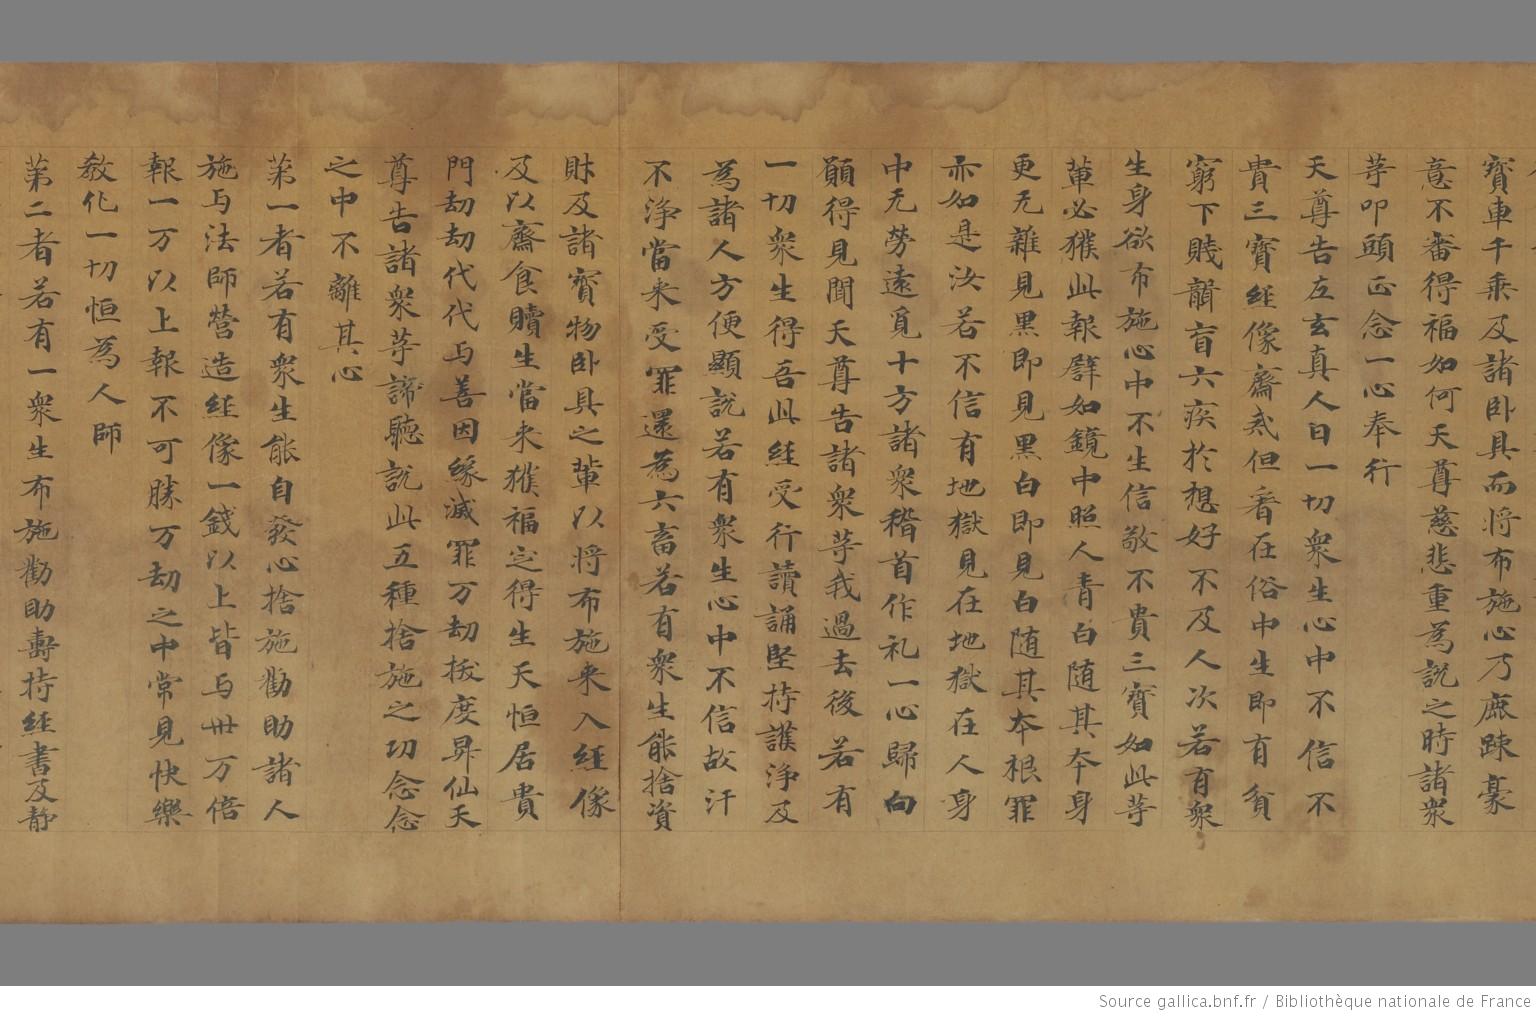 寳車千乘及諸卧具而将布施心乃庶踈豪
意不審得福如何天尊慈悲重為説之時諸衆
等叩頭正念一心奉行
天尊告左玄真人曰一切衆生心中不信不
貴三寳經像齋戒但看在俗中生即有貧
窮下賤聾盲六疾於想好不及人次若有衆
生身欲布施心中不生信敬不貴三寳如此等
輩必獲此報譬如鏡中照人青白随其夲身
更无雜見黒即見黒白即見白随其夲根罪
亦如是汝若不信有地獄見在地獄在人身
中无勞遠覓十方諸衆稽首作礼一心歸向
願得見聞天尊告諸衆等我過去後若有
一切衆生得吾此經受行讀誦堅持護浄及
為諸人方便顯説若有衆生心中不信故汙
不浄當来受罪還為六畜若有衆生能捨資
財及諸寳物卧具之輩以将布施来入經像
及以齋食贖生當来獲福定得生天恒居貴
門劫劫代代与善因緣滅罪万劫拔度昇仙天
尊告諸衆等諦聽説此五種捨施之功念念
之中不離其心
苐一者若有衆生能自發心捨施勸助諸人
施与法師營造經像一錢以上皆与卌万倍
報一万以上報不可勝万劫之中常見快樂
教化一切恒為人師
苐二者若有一衆生布施勸助壽持經書及静